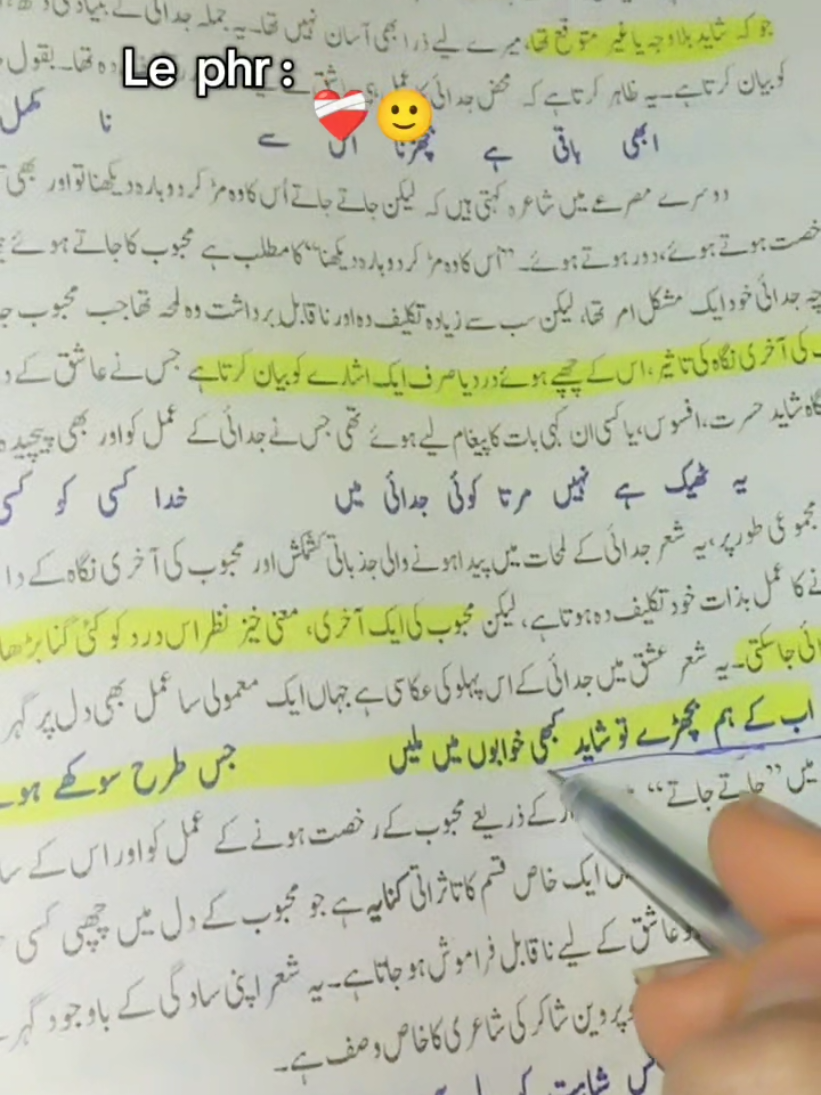 جو کہ شاید بلاوجہ یا غیر متوقع تھا، میرے لیے ذرا بھی آسان نہیں تھا۔ یہ جملہ جدائی کے بنیادی
Le phr:
کو بیان کرتا ہے۔ یہ ظاہر کرتا ہے کہ محض جدائی کا عمل ہی دہ تھا۔ بقول
ابھی باقی ہے بچھڑنا اس سے نا مکمل
دوسرے مصرعے میں شاعرہ کہتی ہیں کہ لیکن جاتے جاتے اُس کا وہ مڑ کر دوبارہ دیکھنا تو اور بھی
خصت ہوتے ہوئے، دور ہوتے ہوئے۔ "اُس کا وہ مڑ کر دوبارہ دیکھنا" کا مطلب ہے محبوب کا جاتے ہوئے
چہ جدائی خود ایک مشکل امر تھا، لیکن سب سے زیادہ تکلیف دہ اور ناقابل برداشت وہ لمحہ تھا جب محبوب
کی آخری نگاہ کی تاثیر، اس کے چھپے ہوئے درد یا صرف ایک اشارے کو بیان کرتا ہے جس نے عاشق کے د
گاہ شاید حسرت، افسوس، یا کسی ان کہی بات کا پیغام لیے ہوئے تھی جس نے جدائی کے عمل کو اور بھی پیچیدہ
یہ ٹھیک ہے نہیں مرتا کوئی جدائی میں خدا کسی کو کسی
مجموعی طور پر، یہ شعر جدائی کے لمحات میں پیدا ہونے والی جذباتی کشمکش اور محبوب کی آخری نگاہ کے دا
نے کا عمل بذات خود تکلیف دہ ہوتا ہے، لیکن محبوب کی ایک آخری، معنی خیز نظر اس درد کو کئی گنا بڑھا
ائی جا سکتی۔ یہ شعر عشق میں جدائی کے اس پہلو کی عکاسی ہے جہاں ایک معمولی سا عمل بھی دل پر گہر
اب کے ہم بچھڑے تو شاید کبھی خوابوں میں ملیں جس طرح سوکھے ہوئے
میں "جاتے جاتے" کے ذریعے محبوب کے رخصت ہونے کے عمل کو اور اس کے سا
ایک خاص قسم کا تاثراتی کنایہ ہے جو محبوب کے دل میں چھپی کسی
عاشق کے لیے ناقابل فراموش ہو جاتا ہے۔ یہ شعر اپنی سادگی کے باوجود گہر
پروین شاکر کی شاعری کا خاص وصف ہے۔